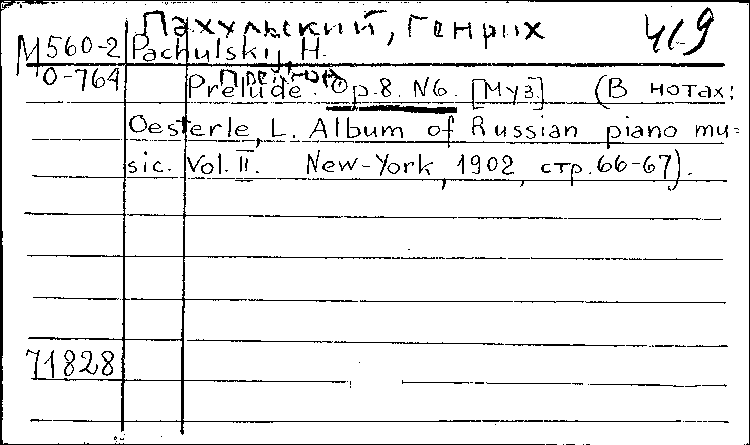 Пахульский, Генрих
М560-2 Pachulskij, H.
0-764 Прелюд
Prélude. Op.8. N6. [Муз] (В нотах:
Oesterle, L. Album of Russian piano mu-
sic. Vol. II. New-York, 1902, стр. 66-67).
71828